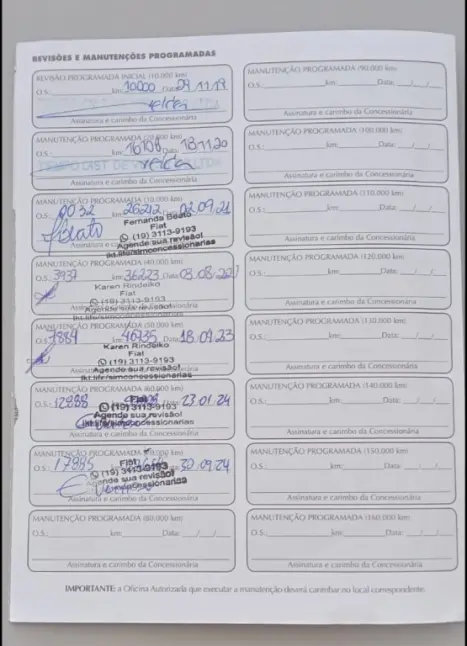 REVISÕES E MANUTENÇÕES PROGRAMADAS
REVISÃO PROGRAMADA INICIAL (10.000 km)
O.S.: km: 10000 Data: 09.11.19
Assinatura e carimbo da Concessionária
MANUTENÇÃO PROGRAMADA (20.000 km)
O.S.: km: 16108 Data: 18.11.20
Assinatura e carimbo da Concessionária
MANUTENÇÃO PROGRAMADA
O.S.: 0032 26212 02.09.21
Fernanda Beato
Fiat
(19) 3113-9193
Agende sua revisão!
lkt.life/simconcessionarias
MANUTENÇÃO PROGRAMADA (40.000 km)
O.S.: 3937 km: 36223 Data: 03.08.22
Karen Rindeiko
Fiat
(19) 3113-9193
Agende sua revisão!
lkt.life/simconcessionarias
MANUTENÇÃO PROGRAMADA (50.000 km)
O.S.: 7884 46235 18.09.23
Karen Rindeiko
Fiat
(19) 3113-9193
Agende sua revisão!
lkt.life/simconcessionarias
MANUTENÇÃO PROGRAMADA (60.000 km)
O.S.: 12898 Data: 23.01.24
Fiat
(19) 3113-9193
Agende sua revisão!
MANUTENÇÃO PROGRAMADA
O.S.: 17985 30.09.24
Fiat
(19) 3113-9193
Agende sua revisão!
Assinatura e carimbo da Concessionária
MANUTENÇÃO PROGRAMADA (80.000 km)
O.S.: km: Data: / /
Assinatura e carimbo da Concessionária
MANUTENÇÃO PROGRAMADA (90.000 km)
O.S.: km: Data: / /
Assinatura e carimbo da Concessionária
MANUTENÇÃO PROGRAMADA (100.000 km)
O.S.: km: Data: / /
Assinatura e carimbo da Concessionária
MANUTENÇÃO PROGRAMADA (110.000 km)
O.S.: km: Data: / /
Assinatura e carimbo da Concessionária
MANUTENÇÃO PROGRAMADA (120.000 km)
O.S.: km: Data: / /
Assinatura e carimbo da Concessionária
MANUTENÇÃO PROGRAMADA (130.000 km)
O.S.: km: Data: / /
Assinatura e carimbo da Concessionária
MANUTENÇÃO PROGRAMADA (140.000 km)
O.S.: km: Data: / /
Assinatura e carimbo da Concessionária
MANUTENÇÃO PROGRAMADA (150.000 km)
O.S.: km: Data: / /
Assinatura e carimbo da Concessionária
MANUTENÇÃO PROGRAMADA (160.000 km)
O.S.: km: Data: / /
Assinatura e carimbo da Concessionária
IMPORTANTE: a Oficina Autorizada que executar a manutenção deverá carimbar no local correspondente.